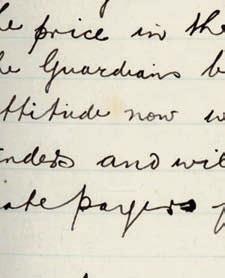 e price in the
he Guardians b
ttitude now w
nders and wil
ate payers f